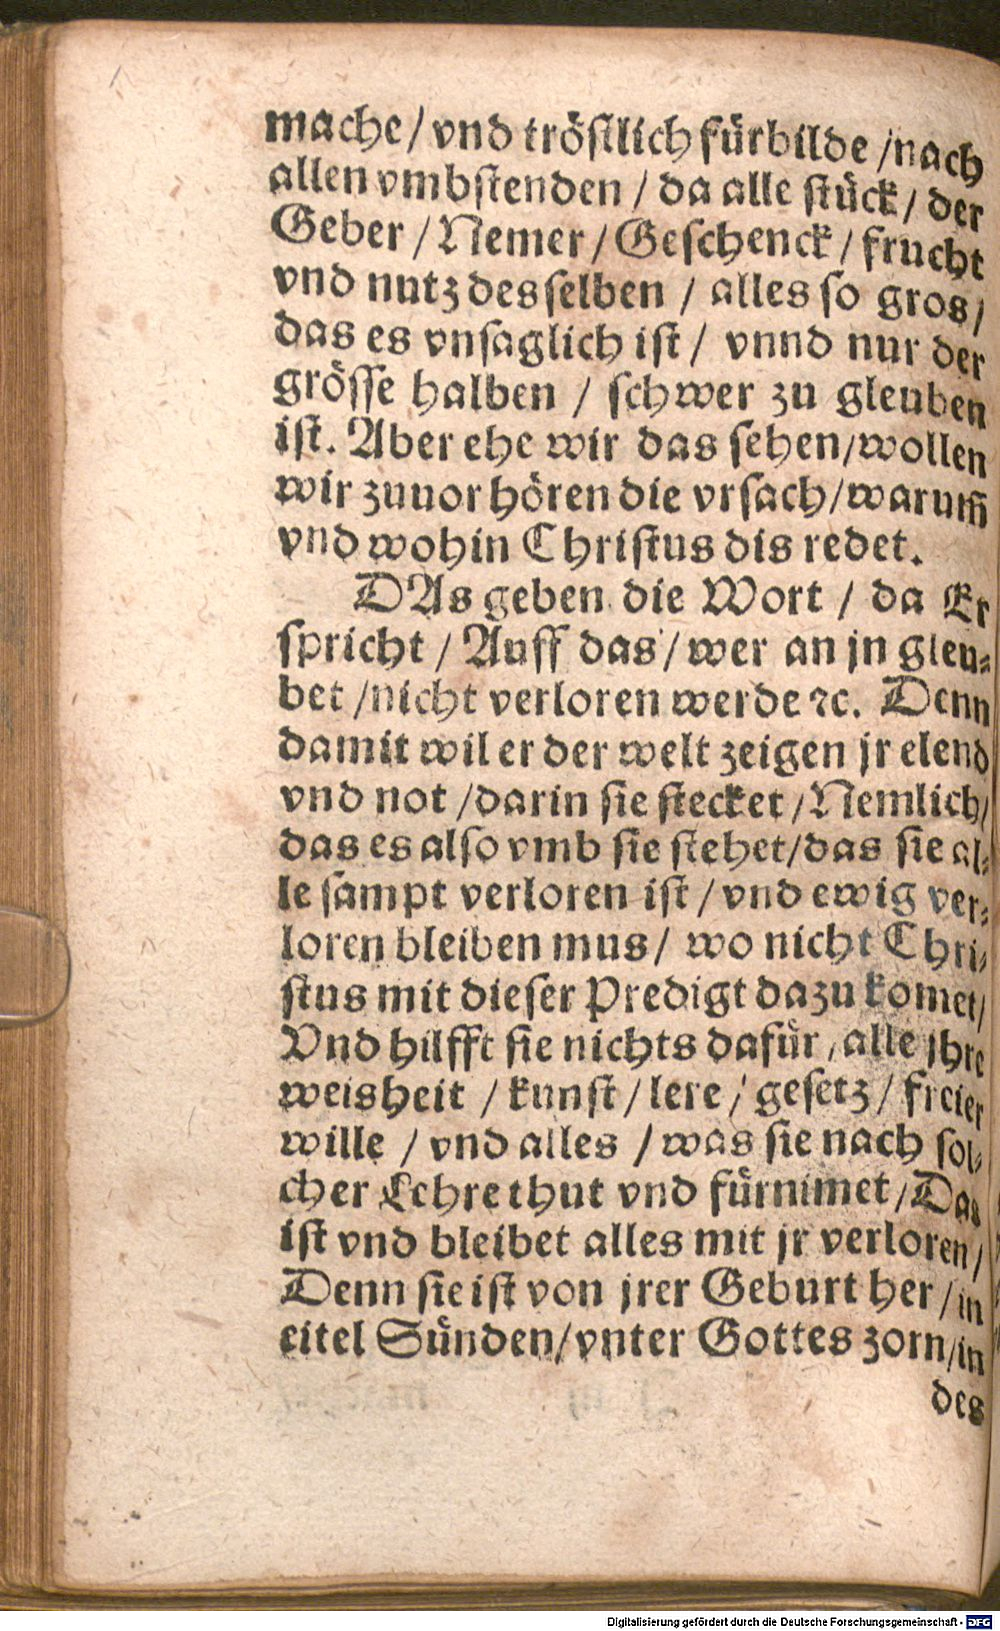 mache / vnd tröstlich fürbilde / nach
allen vmbstenden / da alle stück / der
Geber / Nemer / Geschenck / frucht
vnd nutz desselben / alles so gros /
das es vnsaglich ist / vnnd nur der
grösse halben / schwer zu gleuben
ist. Aber ehe wir das sehen / wollen
wir zuuor hören die vrsach / warum̄
vnd wohin Christus dis redet.
DAs geben die Wort / da Er
spricht / Auff das / wer an jn gleu-
bet / nicht verloren werde ꝛc. Denn
damit wil er der welt zeigen jr elend
vnd not / darin sie stecket / Nemlich /
das es also vmb sie stehet / das sie al-
le sampt verloren ist / vnd ewig ver-
loren bleiben mus / wo nicht Chri-
stus mit dieser Predigt dazu komet /
Vnd hilfft sie nichts dafür / alle jhre
weisheit / kunst / lere / gesetz / freier
wille / vnd alles / was sie nach sol-
cher Lehre thut vnd fürnimet / Das
ist vnd bleibet alles mit jr verloren /
Denn sie ist von jrer Geburt her / in
eitel Sünden / vnter Gottes zorn / in
des
Digitalisierung gefördert durch die Deutsche Forschungsgemeinschaft - DFG